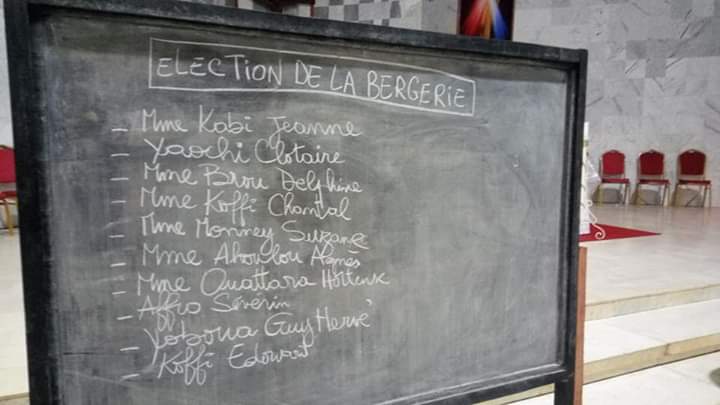 ELECTION DE LA BERGERIE
- Mme Kabi Jeanne
- Yaochi Clotaire
- Mme Brou Delphine
- Mme Koffi Chantal
- Mme Monney Suzane
- Mme Ahoulou Agnès
- Mme Ouattara Hortense
- Affro Séverin
- Yoboua Guy Hervé
- Koffi Edouart